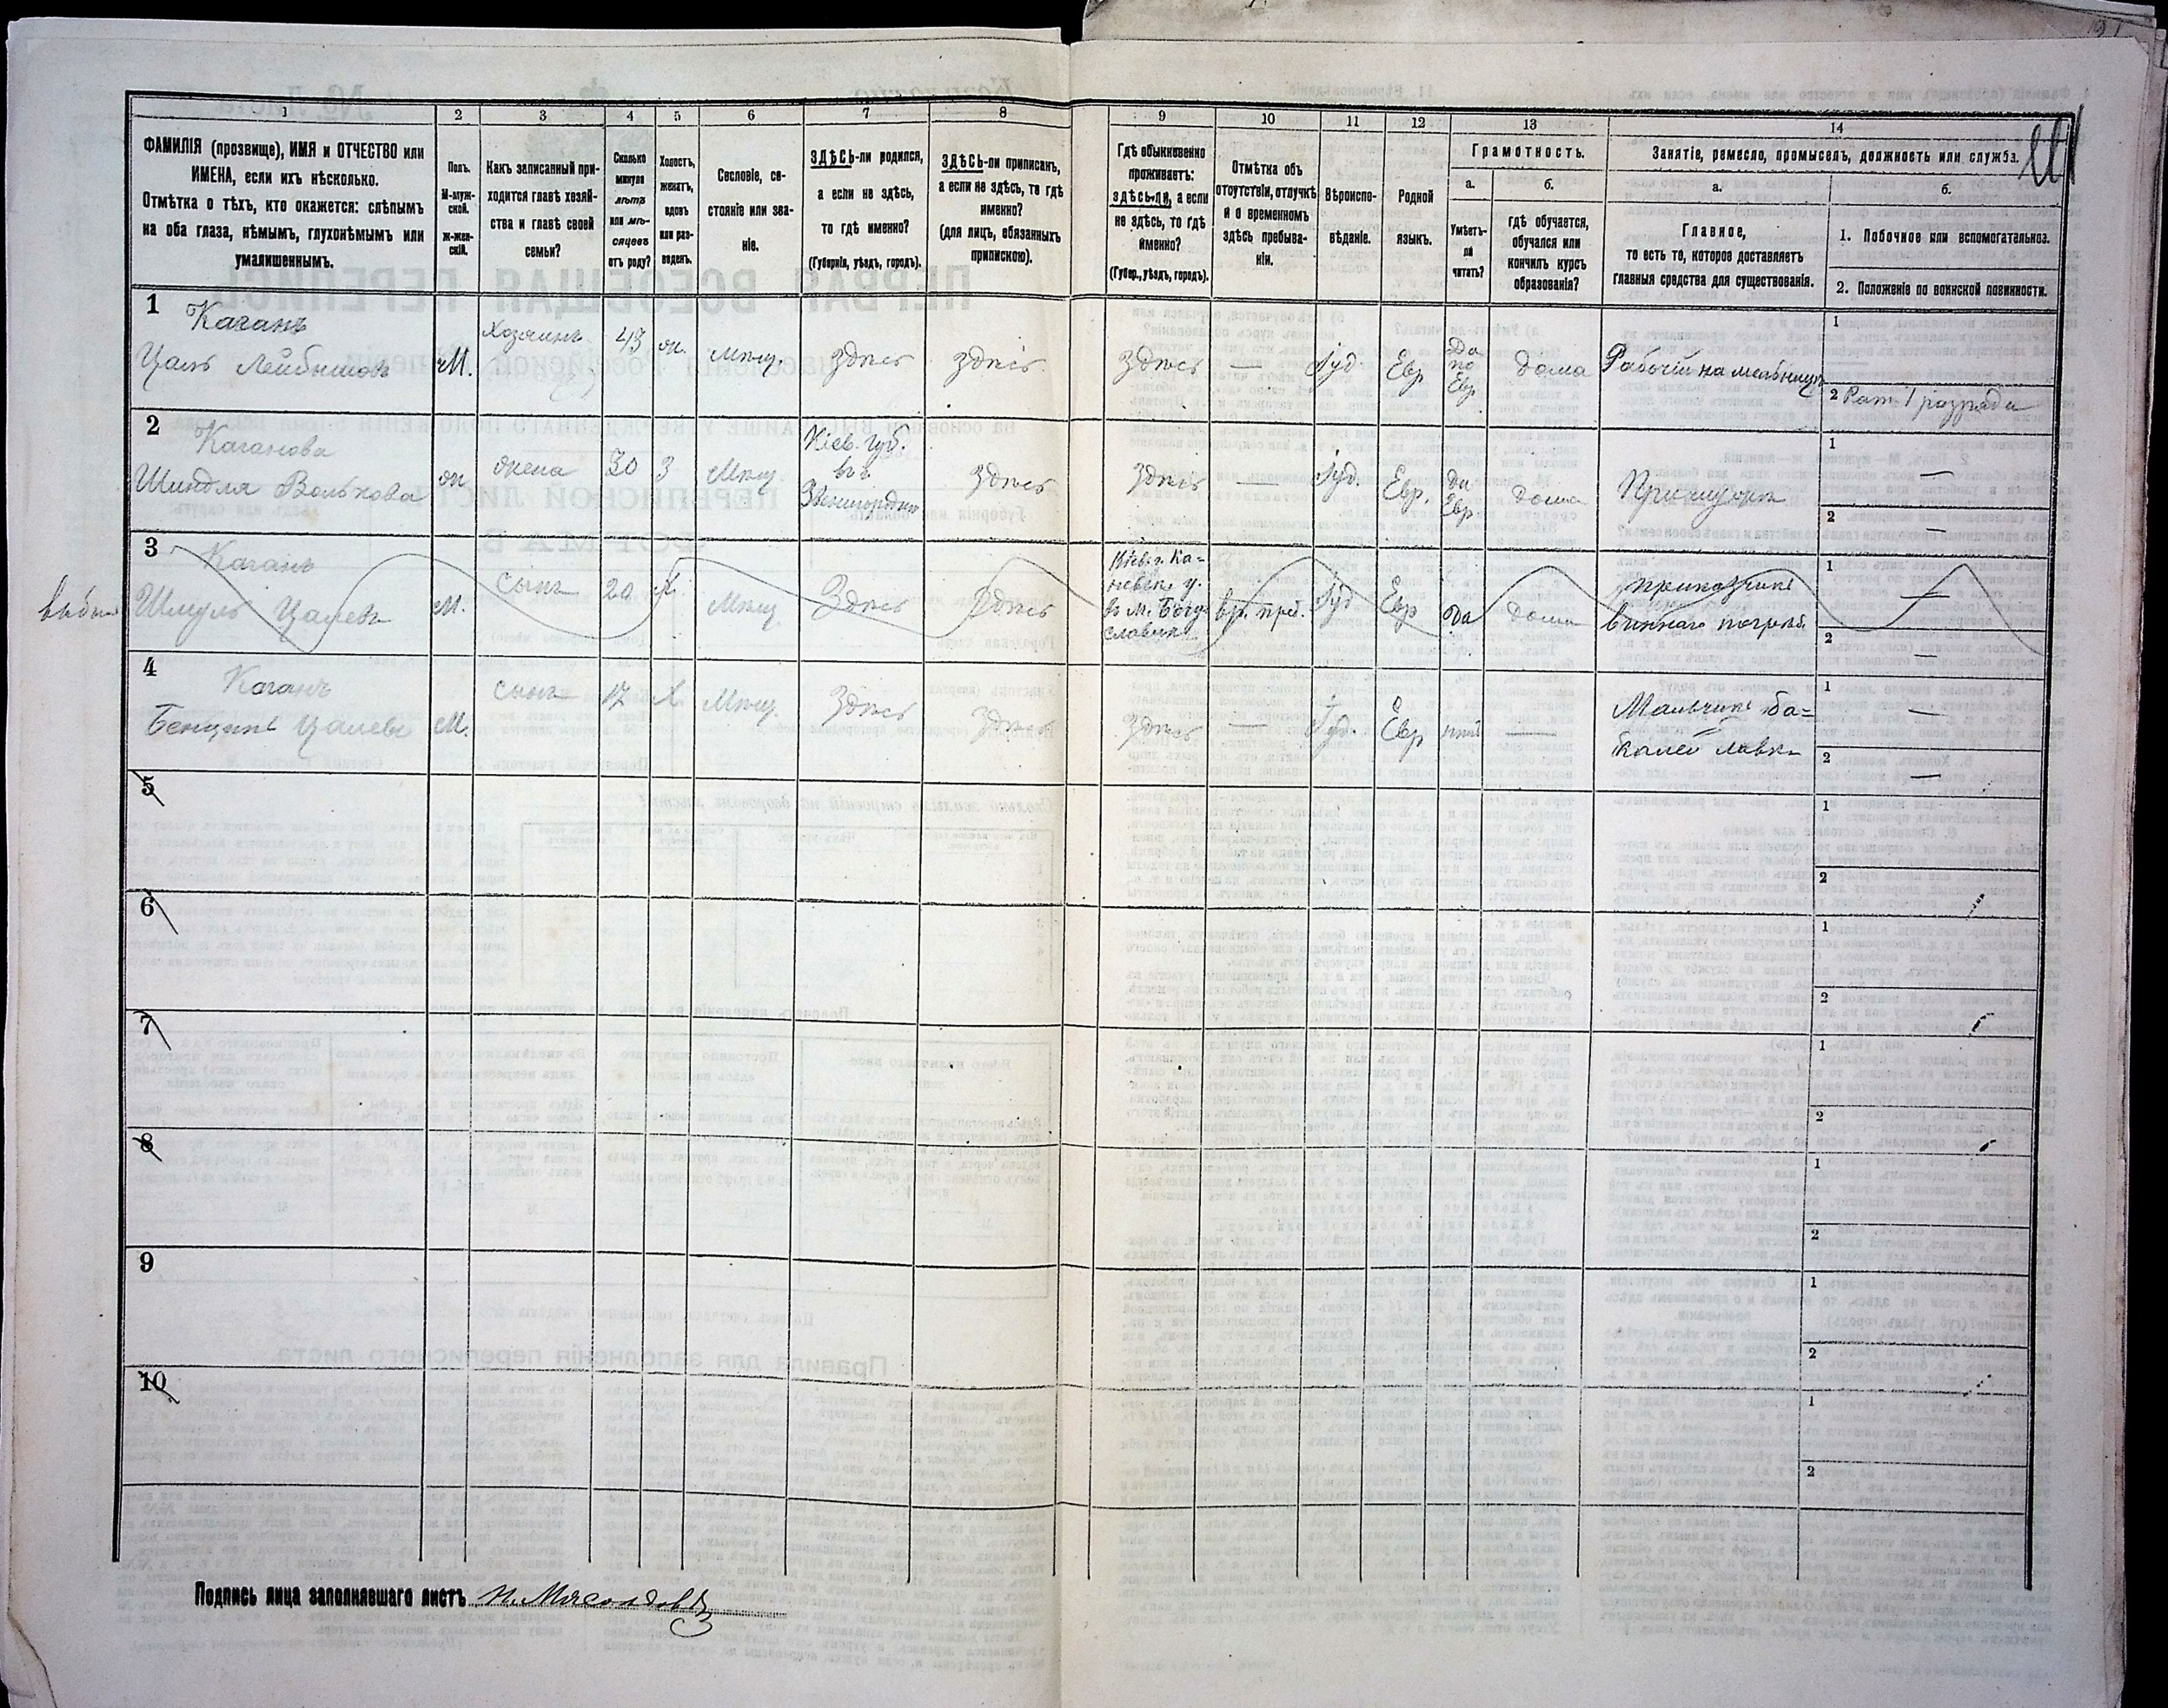 1
2
3
4
5
6
7
8
9
10
11
12
13
14
ФАМИЛІЯ (прозвище), ИМЯ и ОТЧЕСТВО или
ИМЕНА, если ихъ нѣсколько.
Отмѣтка о тѣхъ, кто окажется: слѣпымъ
на оба глаза, нѣмымъ, глухонѣмымъ или
умалишеннымъ.
Полъ.
М-муж-
ской.
ж-жен-
скій.
Какъ записанный при-
ходится главѣ хозяй-
ства и главѣ своей
семьи?
Сколько
минуло
лѣтъ
или мѣ-
сяцевъ
отъ роду?
Холостъ,
женатъ,
вдовъ
или раз-
веденъ.
Сословіе, со-
стояніе или зва-
ніе.
ЗДѢСЬ-ли родился,
а если не здѣсь,
то гдѣ именно?
(Губернія, уѣздъ, городъ).
ЗДѢСЬ-ли приписанъ,
а если не здѣсь, то гдѣ
именно?
(для лицъ, обязанныхъ
припискою).
Гдѣ обыкновенно
проживаетъ:
здѣсь-ли, а если
не здѣсь, то гдѣ
именно?
(Губер., уѣздъ, городъ).
Отмѣтка объ
отсутствіи, отлучкѣ
и о временномъ
здѣсь пребыва-
ніи.
Вѣроиспо-
вѣданіе.
Родной
языкъ.
Грамотность.
а.
б.
Умѣетъ-
ли
читать?
гдѣ обучается,
обучался или
кончилъ курсъ
образованія?
Занятіе, ремесло, промыселъ, должность или служба.
а.
б.
Главное,
то есть то, которое доставляетъ
главныя средства для существованія.
1. Побочное или вспомогательное.
2. Положеніе по воинской повинности.
1
Каганъ
Цаль Лейбышовъ
М.
Хозяинъ
43
ж.
Мѣщ.
Здѣсь
здѣсь
Здѣсь
—
Іуд.
Евр
Да
по
Евр
Дома
Рабочій на мельницѣ
1
2 Рат. 1 разряда
2
Каганова
Шиндля Волькова
ж
жена
30
З
Мѣщ
Кіев. губ.
въ
Звенигородкѣ
Здѣсь
Здѣсь
—
Іуд.
Евр.
да
Евр
дома
При мужѣ
1
—
2
—
выбылъ
3
Каганъ
Шмуль Цалевъ
М.
сынъ
20
Х
Мѣщ
Здѣсь
Здѣсь
Кіев. г. Ка-
невск. у.
в м. Богу-
славкѣ
вр. преб.
Іуд
Евр
да
дома
приказчикъ
виннаго погреба
1
—
2
—
4
Каганъ
Бенціонъ Цалевъ
М.
сынъ
17
Х
Мѣщ.
Здѣсь
Здѣсь
Здѣсь
—
Іуд.
Евр
нѣтъ
—
Мальчикъ ба=
калей лавки
1
—
2
—
5
1
2
6
1
2
7
1
2
8
1
2
9
1
2
10
1
2
Подпись лица заполнявшаго листъ Н. Мясоѣдовъ